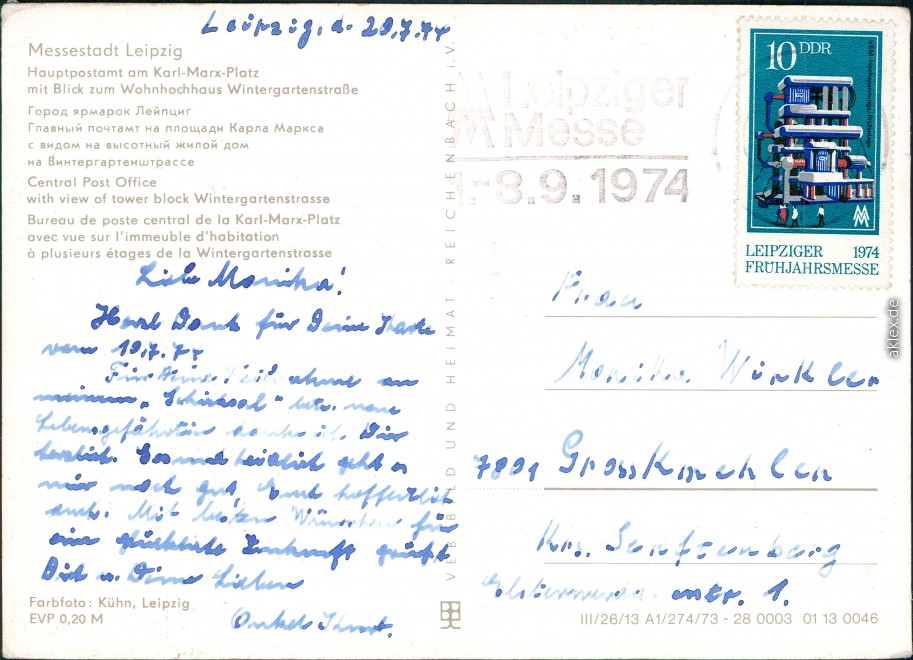 Leipzig, d. 29.7.74
Messestadt Leipzig
Hauptpostamt am Karl-Marx-Platz
mit Blick zum Wohnhochhaus Wintergartenstraße
Город ярмарок Лейпциг
Главный почтамт на площади Карла Маркса
с видом на высотный жилой дом
на Винтергартенштрассе
Central Post Office
with view of tower block Wintergartenstrasse
Bureau de poste central de la Karl-Marx-Platz
avec vue sur l'immeuble d'habitation
à plusieurs étages de la Wintergartenstrasse
Liebe Monika!
Herzl Dank für Deine Karte
vom 19.7.74
Für Deine Teilnahme an
meinem „Schicksal" betr. neue
Lebensgefährtin danke ich Dir
herzlich. Gesundheitlich geht es
mir noch gut, Euch hoffentlich
auch. Mit besten Wünschen für
eine glückliche Zukunft grüßt
Dich u. Deine Lieben
Onkel Kurt.
Farbfoto: Kühn, Leipzig
EVP 0,20 M
VEB BILD UND HEIMAT REICHENBACH i. V.
Leipziger
Messe
1.-8.9.1974
10 DDR
LEIPZIGER 1974
FRÜHJAHRSMESSE
Frau
Monika Winkler
7801 Grosskmehlen
Krs. Senftenberg
str. 1.
III/26/13 A1/274/73 - 28 0003 01 13 0046
aklex.de